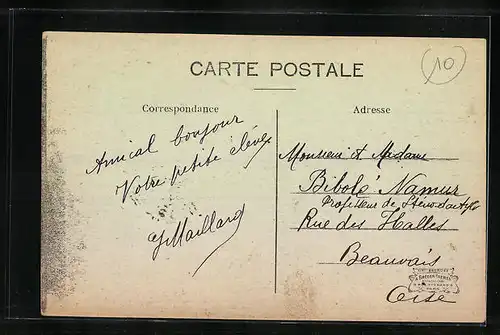 CARTE POSTALE
10
Correspondance
Adresse
Amical bonjour
Votre petite élève
Maillard
Monsieur et Madame
Bibolé Namur
Professeur de Sténo-dactylo
Rue des Halles
Beauvais
Oise